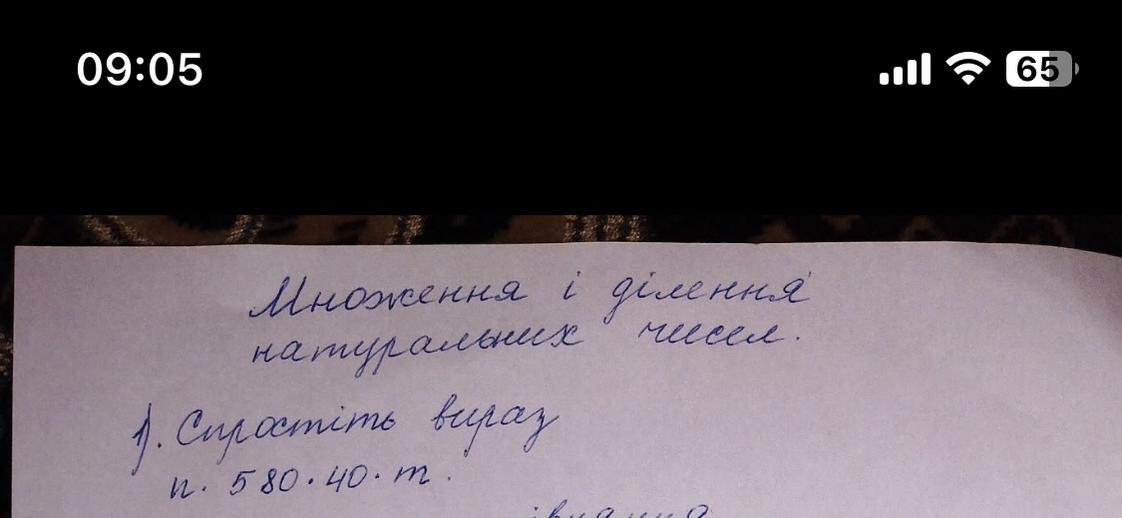 09:05
65
Множення і ділення
натуральних чисел.
1). Спростіть вираз
n. 580·40·m.